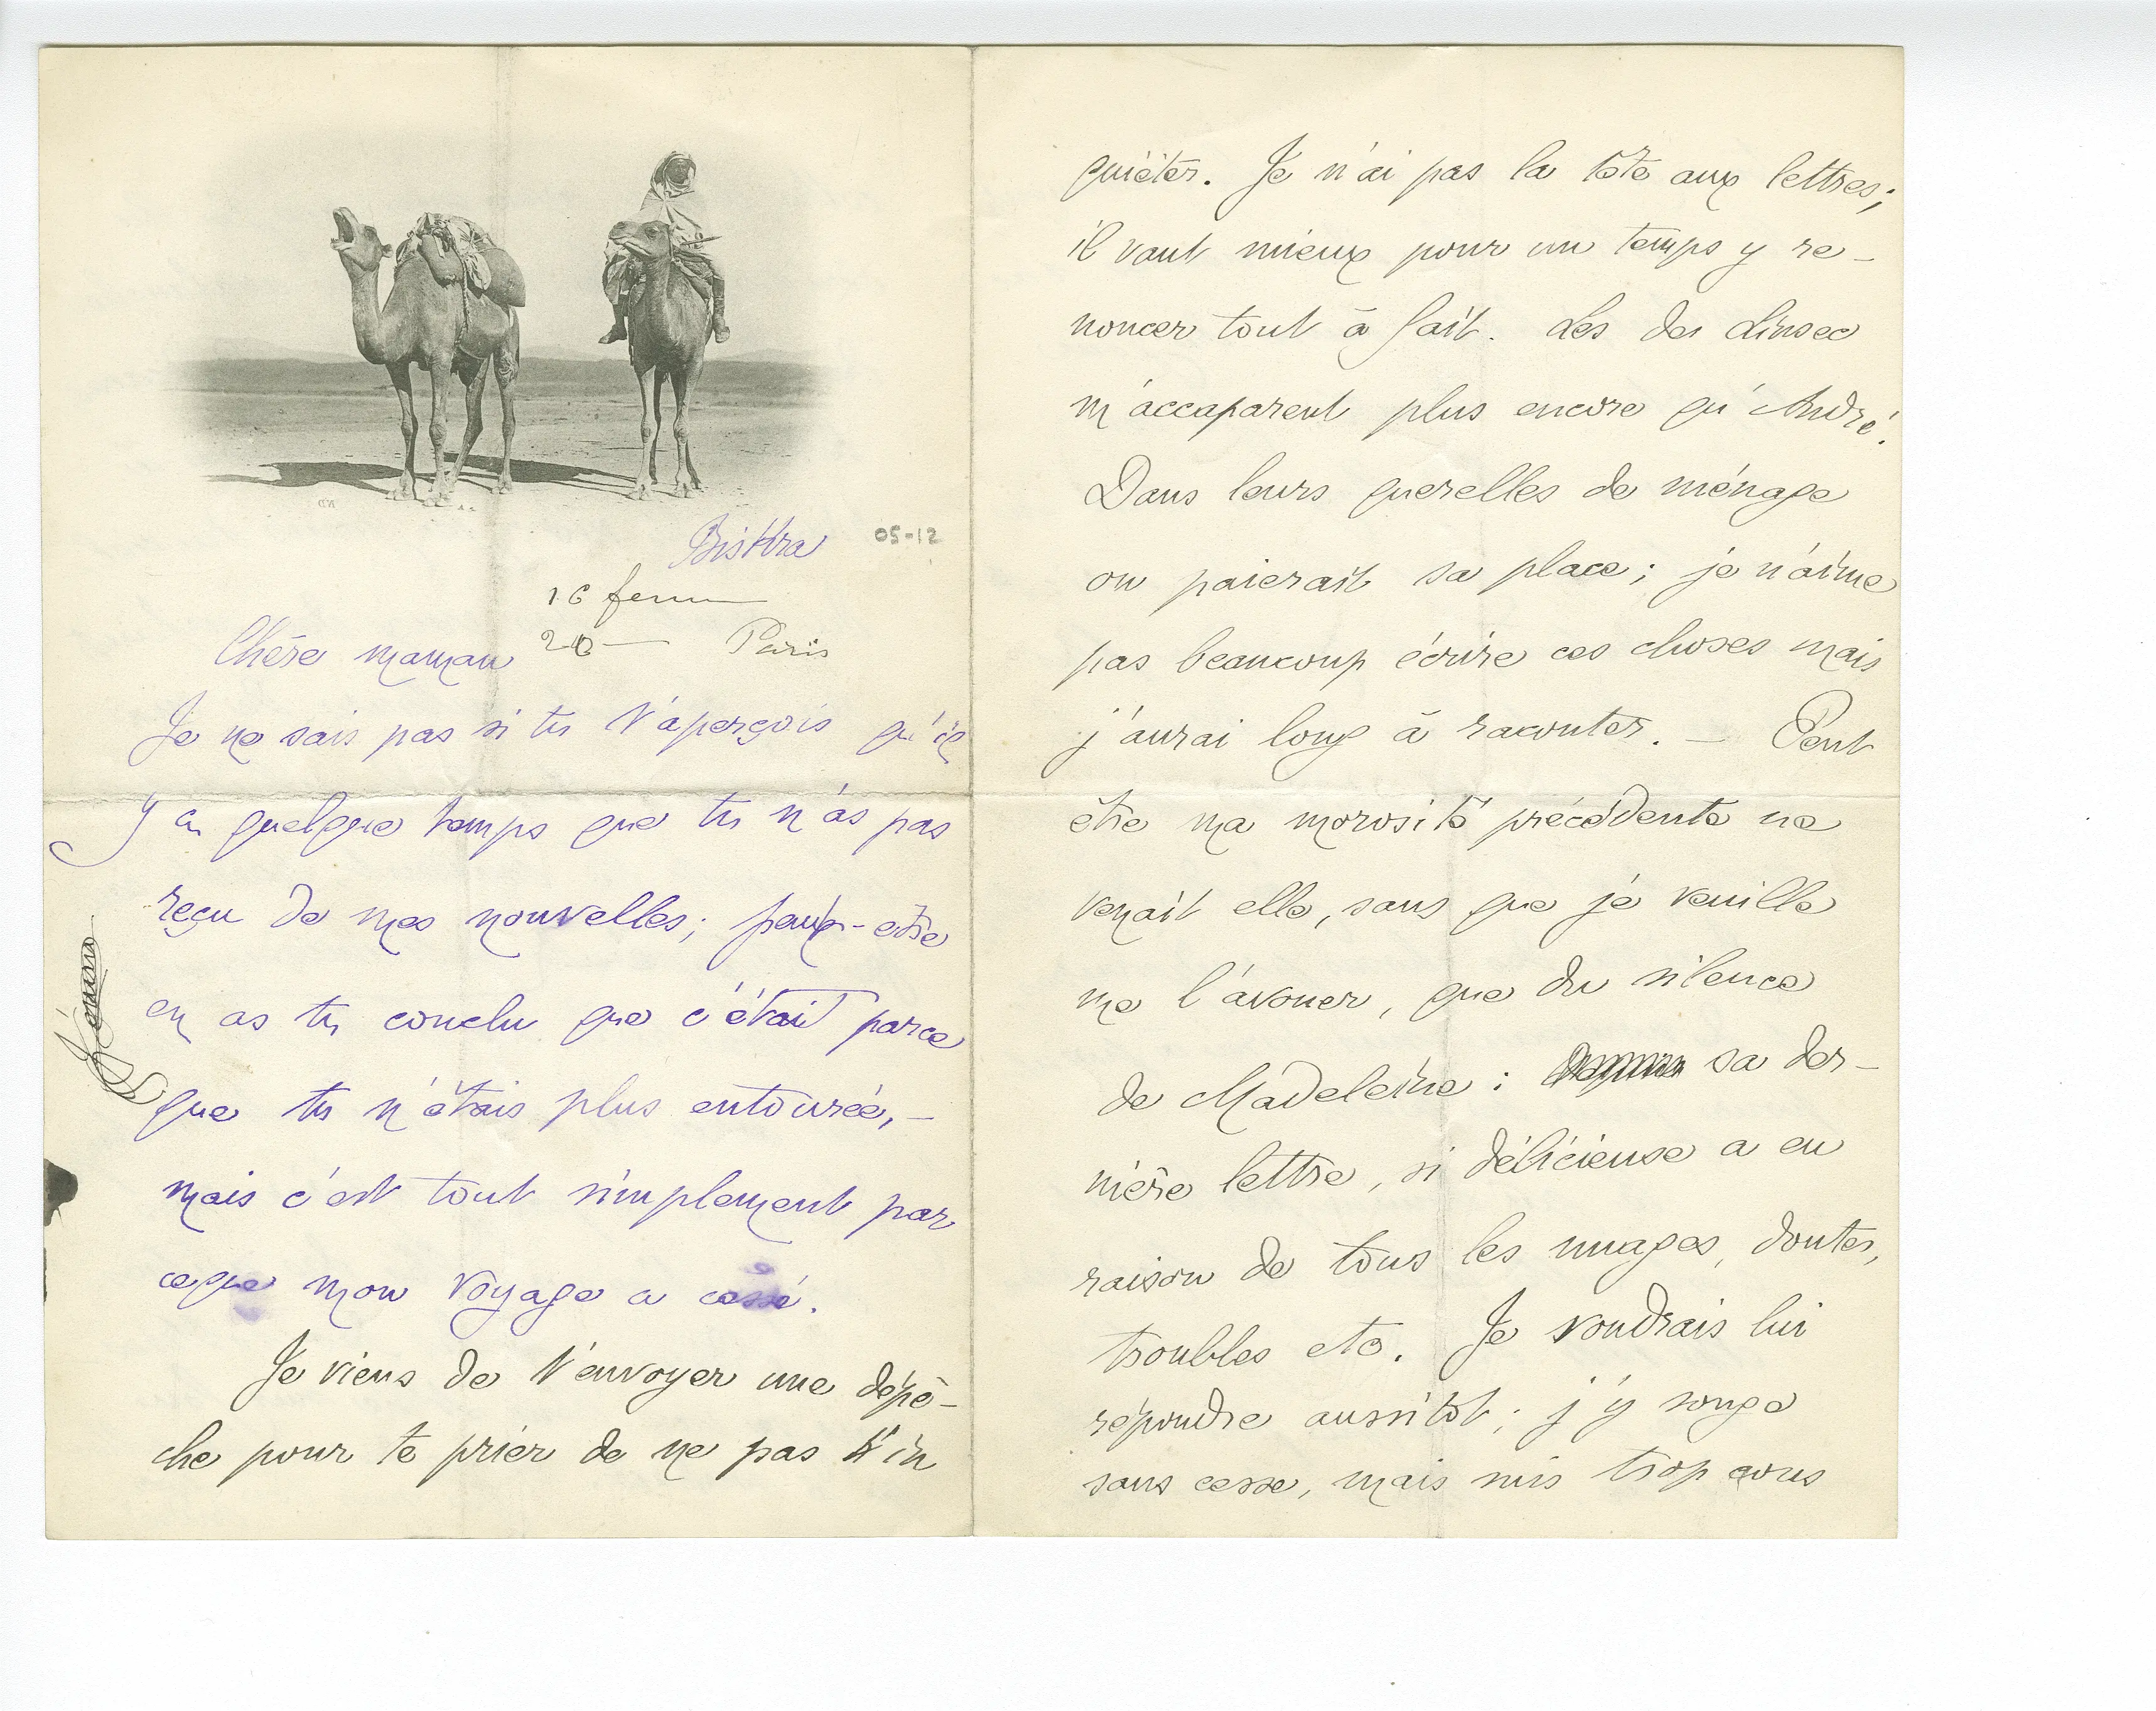 Biskra 05-12
16
20 — Paris
Chère maman
Je ne sais pas si tu t'aperçois qu'il
y a quelque temps que tu n'as pas
reçu de mes nouvelles; peut-etre
en as tu conclu que c'était parce
que tu n'étais plus entourée, —
mais c'est tout simplement par
ceque mon voyage a cessé.
Je viens de t'envoyer une dépê-
che pour te prier de ne pas t'in
quiéter. Je n'ai pas la tête aux lettres;
il vaut mieux pour un temps y re-
noncer tout à fait. Les de
m'accaparent plus encore qu'André.
Dans leurs querelles de ménage
on paierait sa place; je n'aime
pas beaucoup écrire ces choses mais
j'aurai long à raconter. — Peut
être ma morosité précédente ne
venait elle, sans que je veuille
me l'avouer, que du silence
de Madeleine: sa der-
nière lettre, si délicieuse a eu
raison de tous les nuages, doutes,
troubles etc. Je voudrais lui
répondre aussitôt; j'y songe
sans cesse, mais suis trop cons